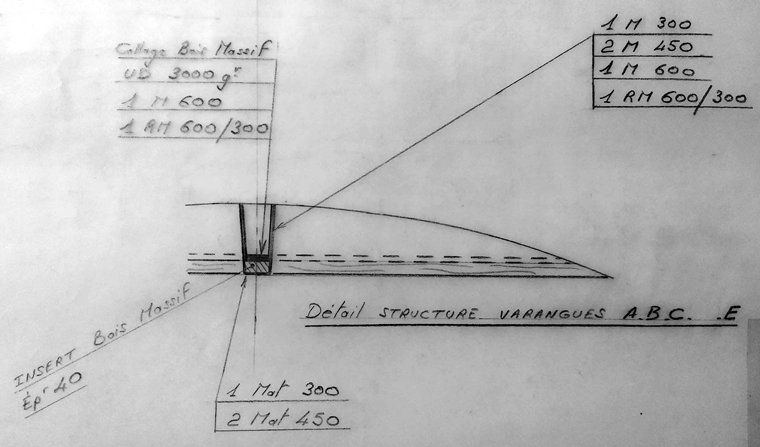 Collage Bois Massif
UD 3000 gr
1 M 600
1 RM 600/300
1 M 300
2 M 450
1 M 600
1 RM 600/300
INSERT Bois Massif
Épr 40
Détail STRUCTURE VARANGUES A.B.C. .E
1 Mat 300
2 Mat 450